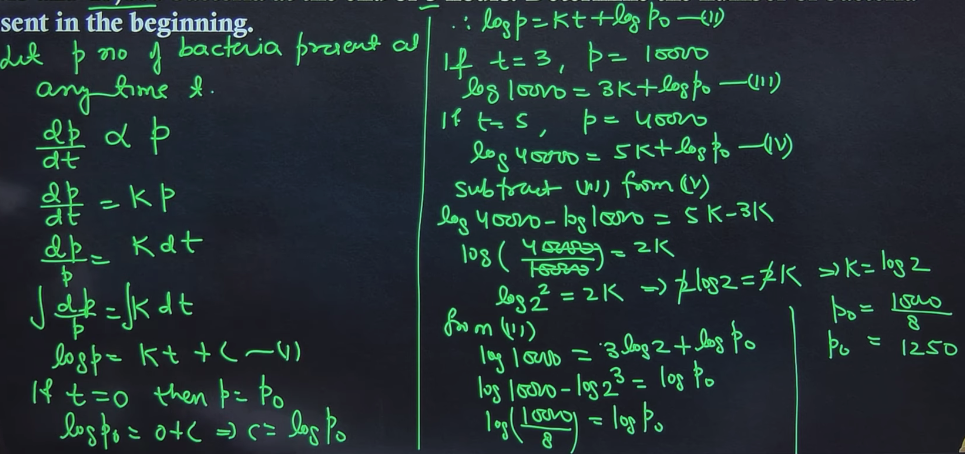 sent in the beginning.
Let p no of bacteria present at
any time t.
dp/dt ∝ p
dp/dt = K p
dp/p = K dt
∫ dp/p = ∫ K dt
log p = Kt + C —(I)
If t=0 then p = p₀
log p₀ = 0+C ⇒ C = log p₀
∴ log p = Kt + log p₀ —(II)
If t = 3, p = 10000
log 10000 = 3K + log p₀ —(III)
If t = 5, p = 40000
log 40000 = 5K + log p₀ —(IV)
subtract (III) from (V)
log 40000 - log 10000 = 5K-3K
log(40000/10000) = 2K
log 2² = 2K ⇒ 2log2 = 2K ⇒ K = log 2
from (III)
log 10000 = 3 log 2 + log p₀
log 10000 - log 2³ = log p₀
log(10000/8) = log p₀
p₀ = 10000/8
p₀ = 1250